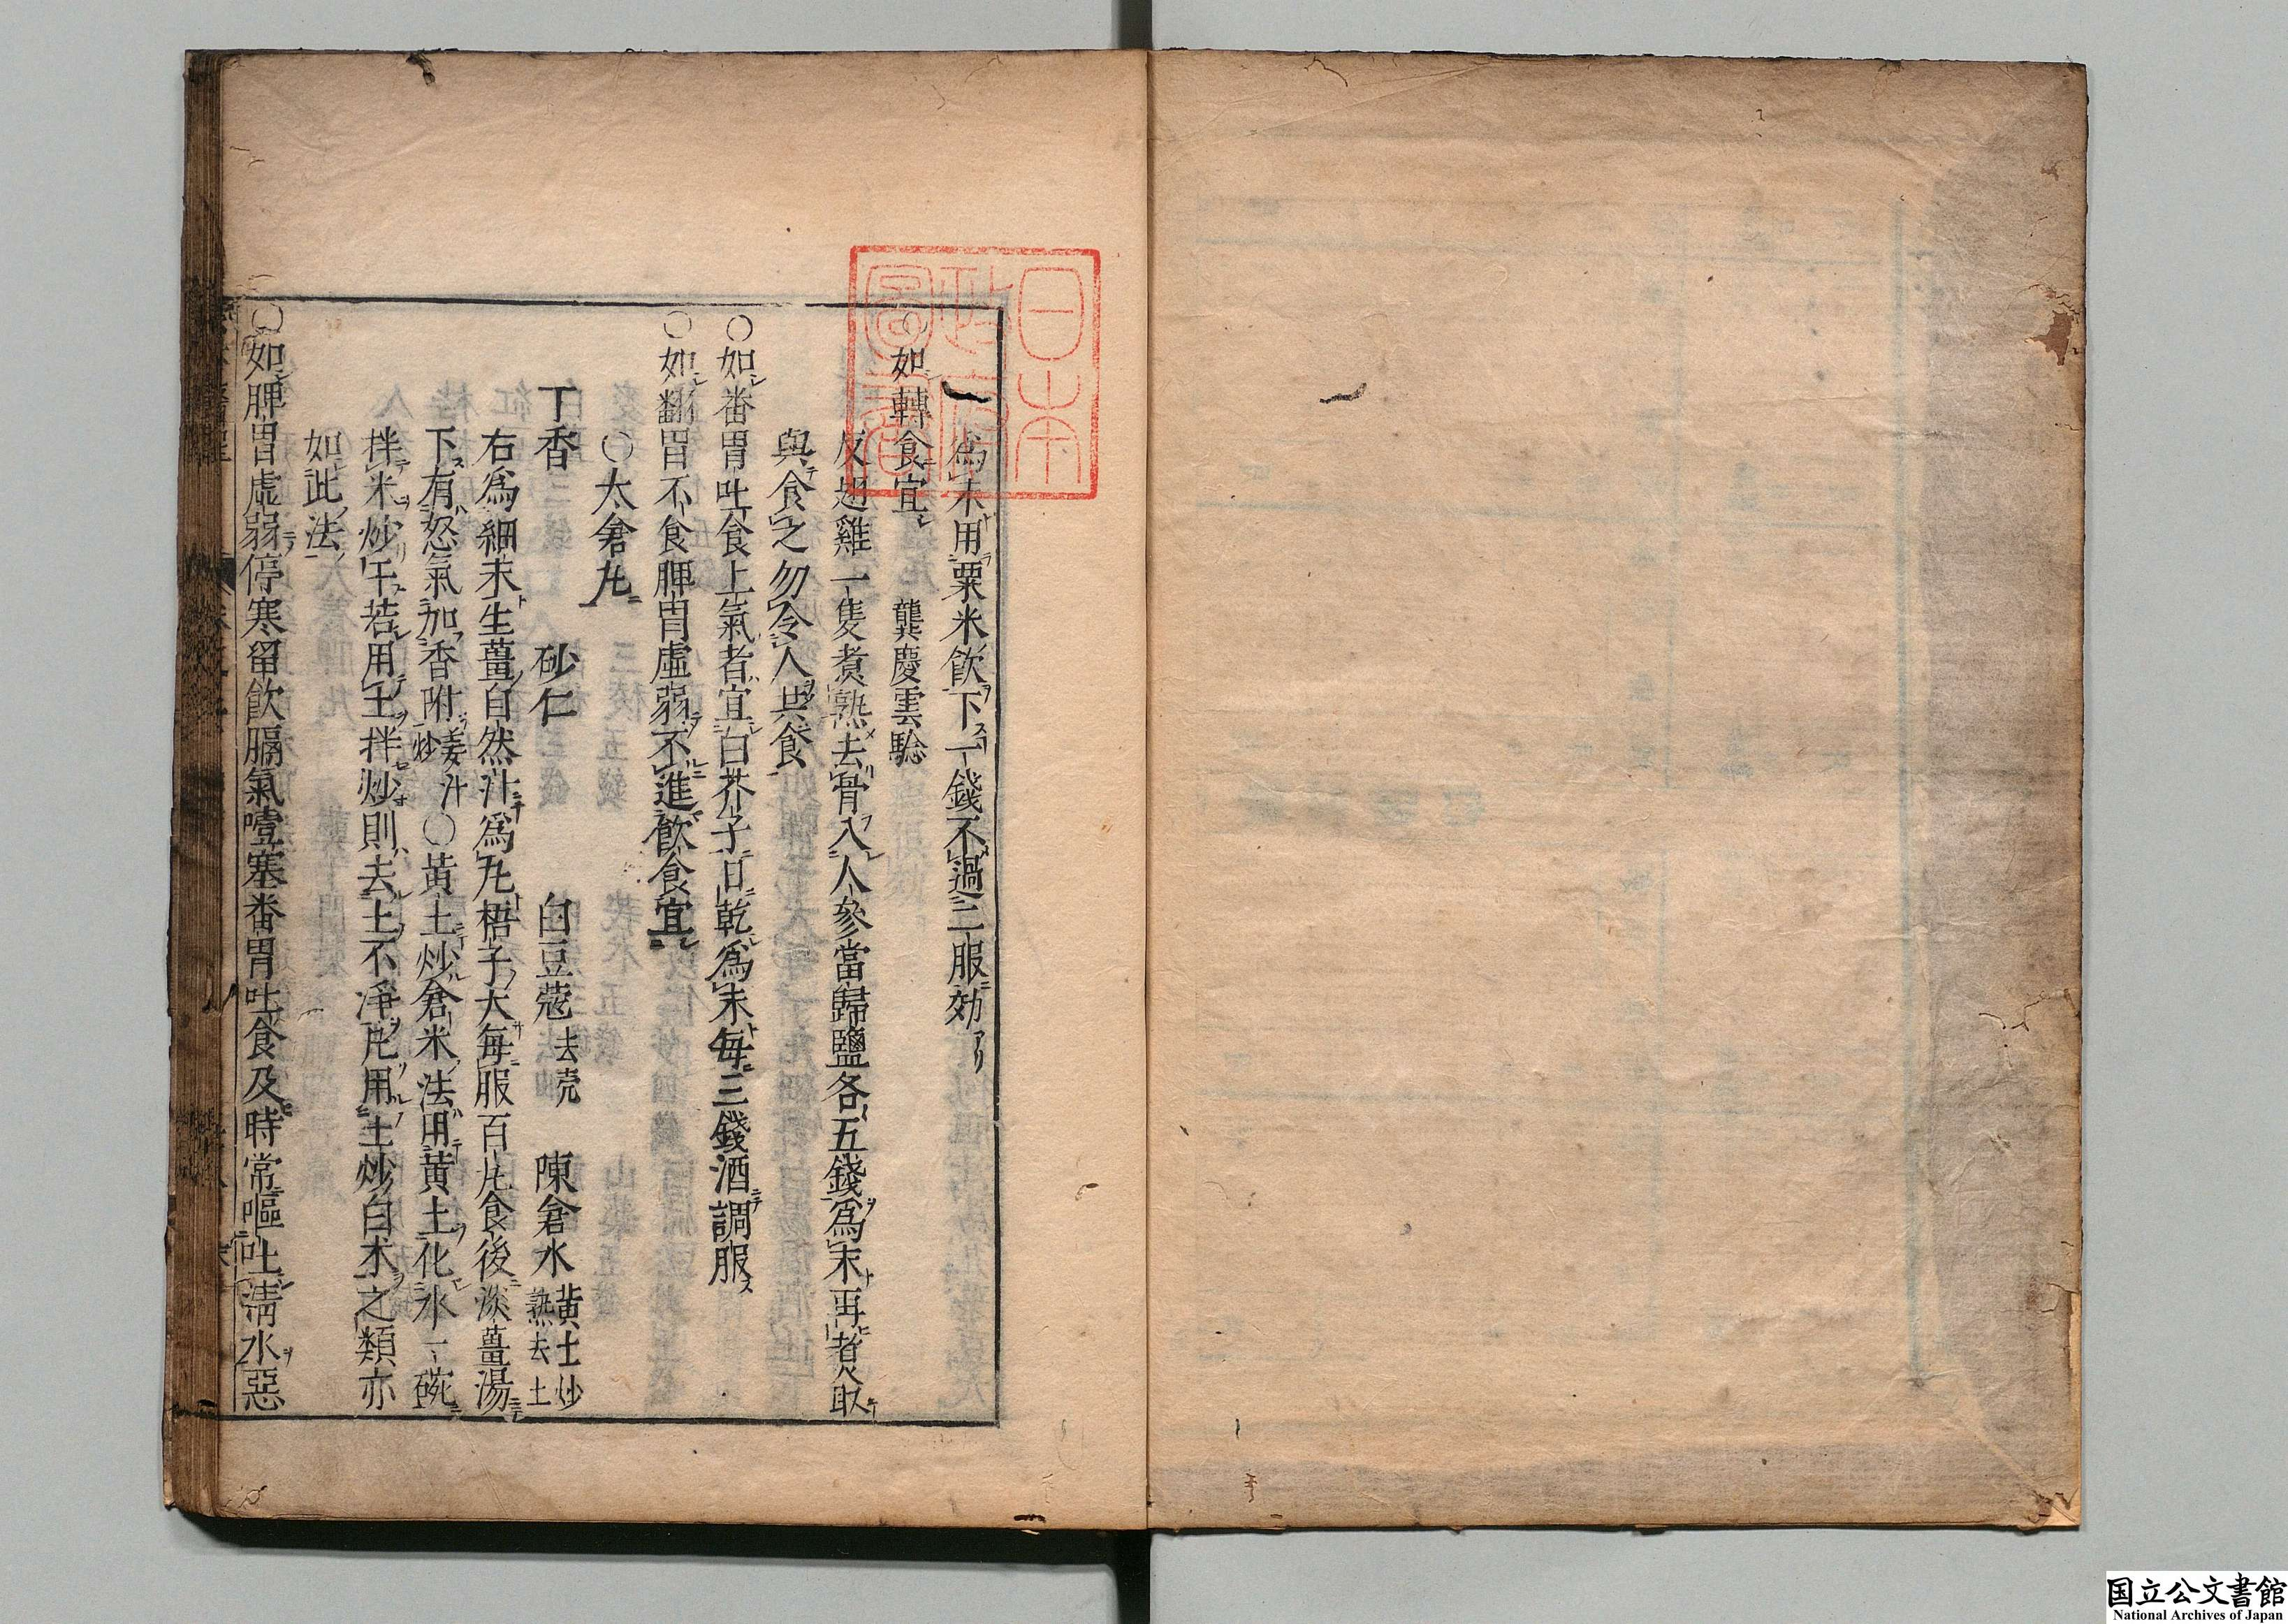 日本
政府
圖書
為末用粟米飲下一錢不過二服効
○如轉食宜 龔慶雲騐
反翅雞一隻煮熟去骨入人參當歸鹽各五錢為末再煮取
與食之勿令人共食
○如番胃吐食上氣者宜白芥子日乾爲末毎三錢酒調服
○如翻胃不食脾胃虛弱不進飲食宜
○太倉丸
丁香 砂仁 白豆蔻去壳 陳倉水黄土炒熟去土
右爲細末生薑自然汁爲丸梧子大每服百丸食後淡薑湯
下有怒氣加香附姜汁炒○黃土炒倉米法用黃土化水一碗
拌米炒干若用土拌炒則去土不淨凡用土炒白朮之類亦
如此法
○如脾胃虛弱停寒留飲膈氣噎塞番胃吐食及時常嘔吐清水惡
国立公文書館
National Archives of Japan